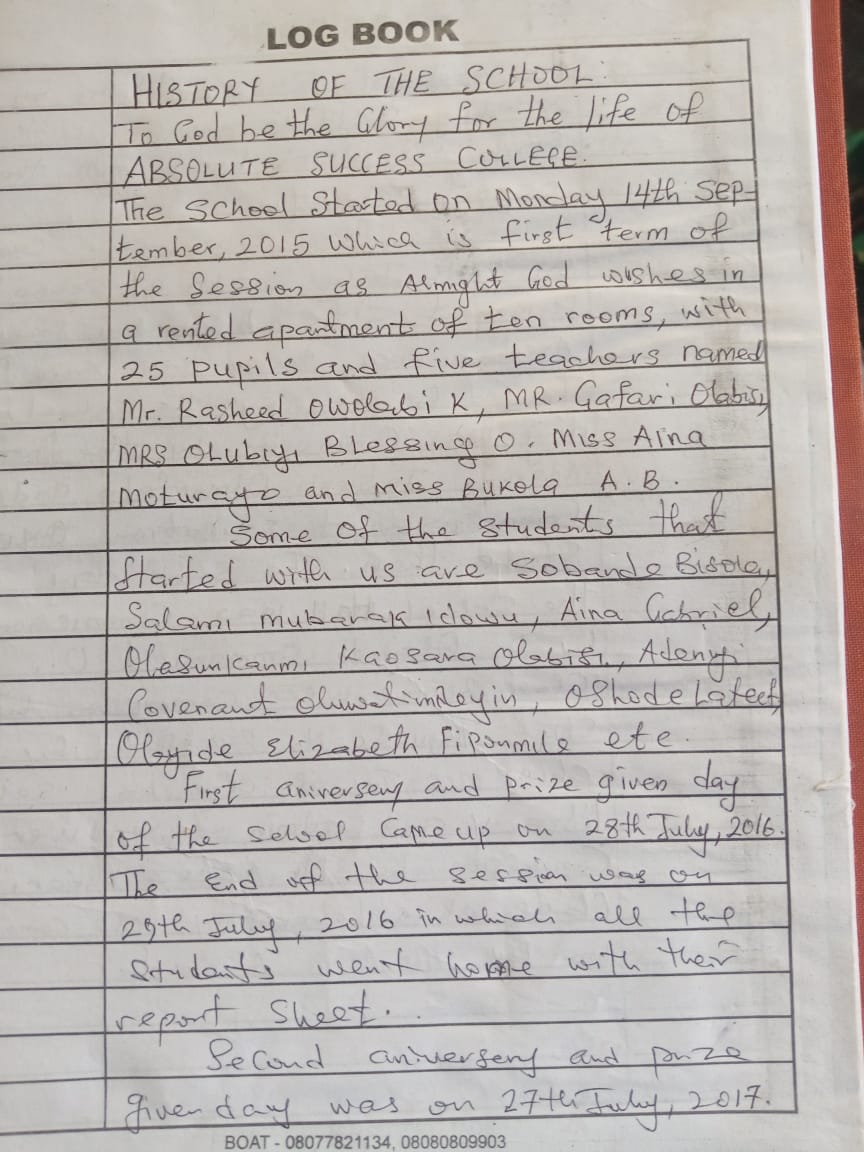 LOG BOOK
HISTORY OF THE SCHOOL:
To God be the Glory for the life of
ABSOLUTE SUCCESS COLLEGE.
The School Started on Monday 14th Sep-
tember, 2015 which is first term of
the Session as Almight God wishes in
a rented apartment of ten rooms, with
25 pupils and five teachers named
Mr. Rasheed Owolabi K, MR. Gafari Olabisi,
MRS Olubiyi Blessing O. Miss Aina
Moturayo and Miss Bukola A.B.
Some of the students that
started with us are Sobande Bisola,
Salami Mubarak Idowu, Aina Gabriel,
Olasunkanmi Kaosara Olabisi, Adeniyi
Covenant Oluwatimileyin, Oshode Lateef,
Olayide Elizabeth Fiponmile etc.
First aniversery and prize given day
of the school came up on 28th July, 2016.
The End of the session was on
29th July, 2016 in which all the
students went home with their
report sheet..
Second aniversery and prize
given day was on 27th July, 2017.
BOAT - 08077821134, 08080809903